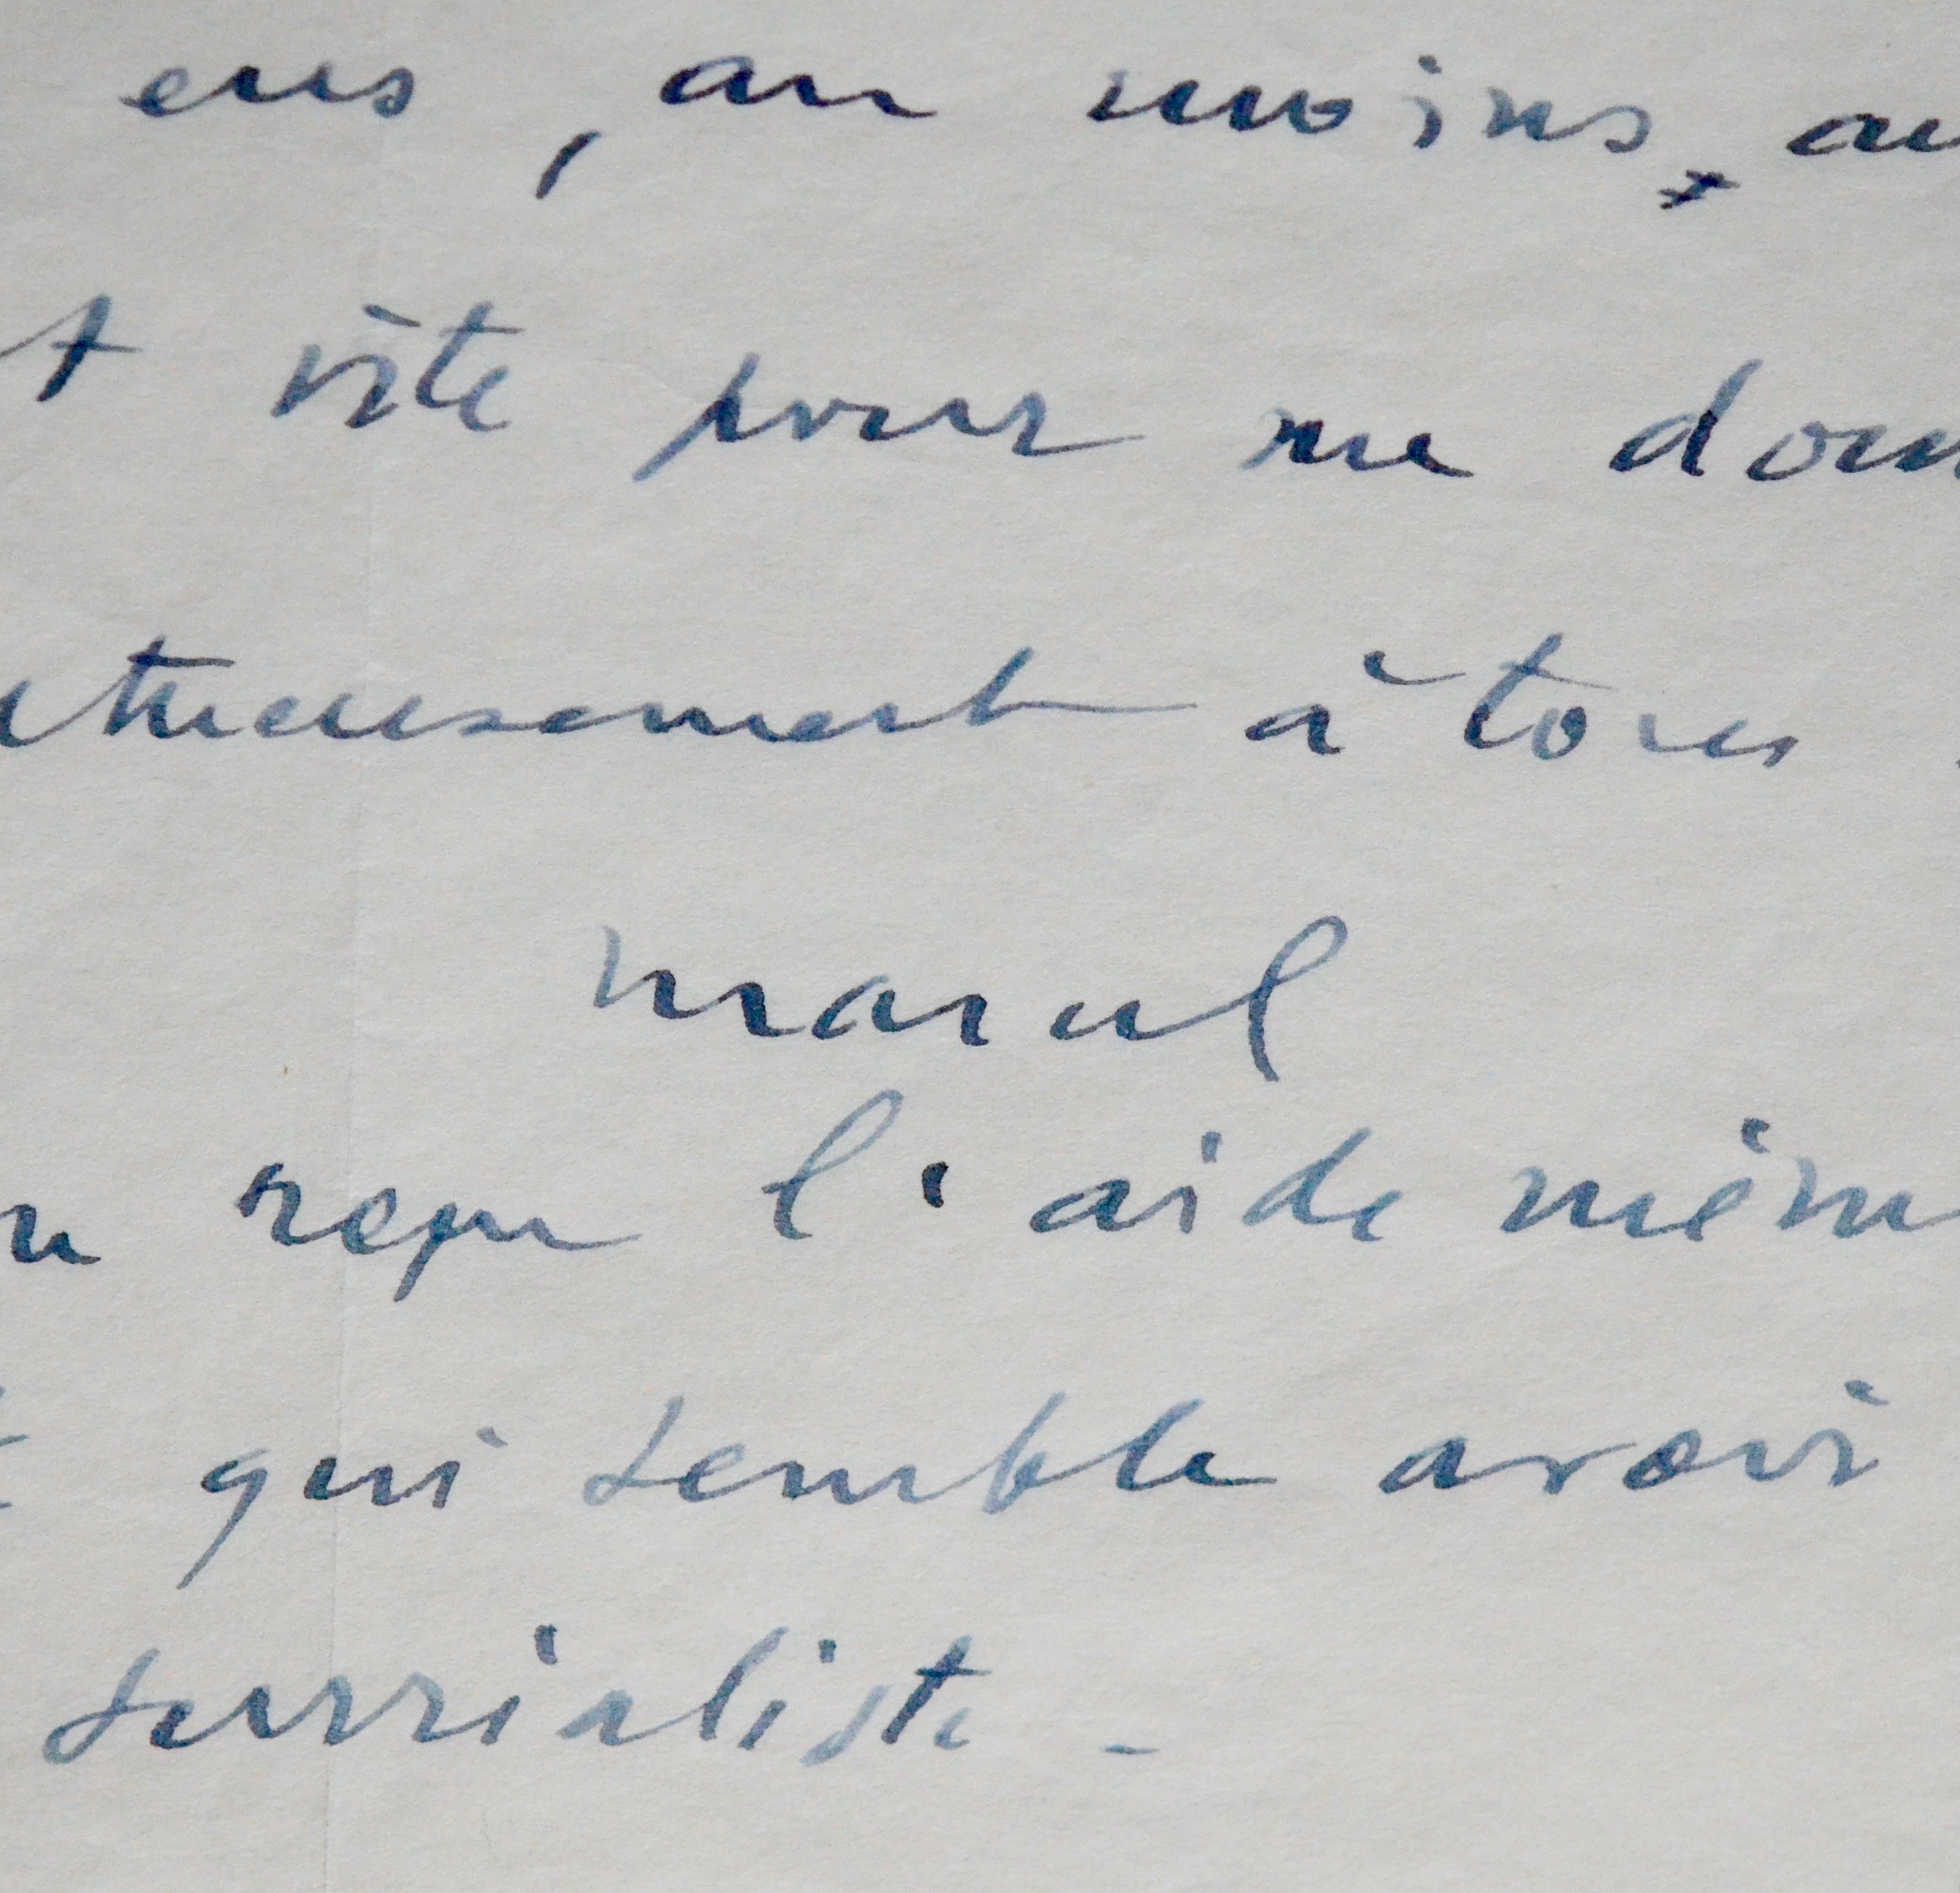 eus, au moins, au
t vite pour me donn
ctueusement à tous
marcel
n reçu l'aide mém
qui semble avoir
surréaliste -